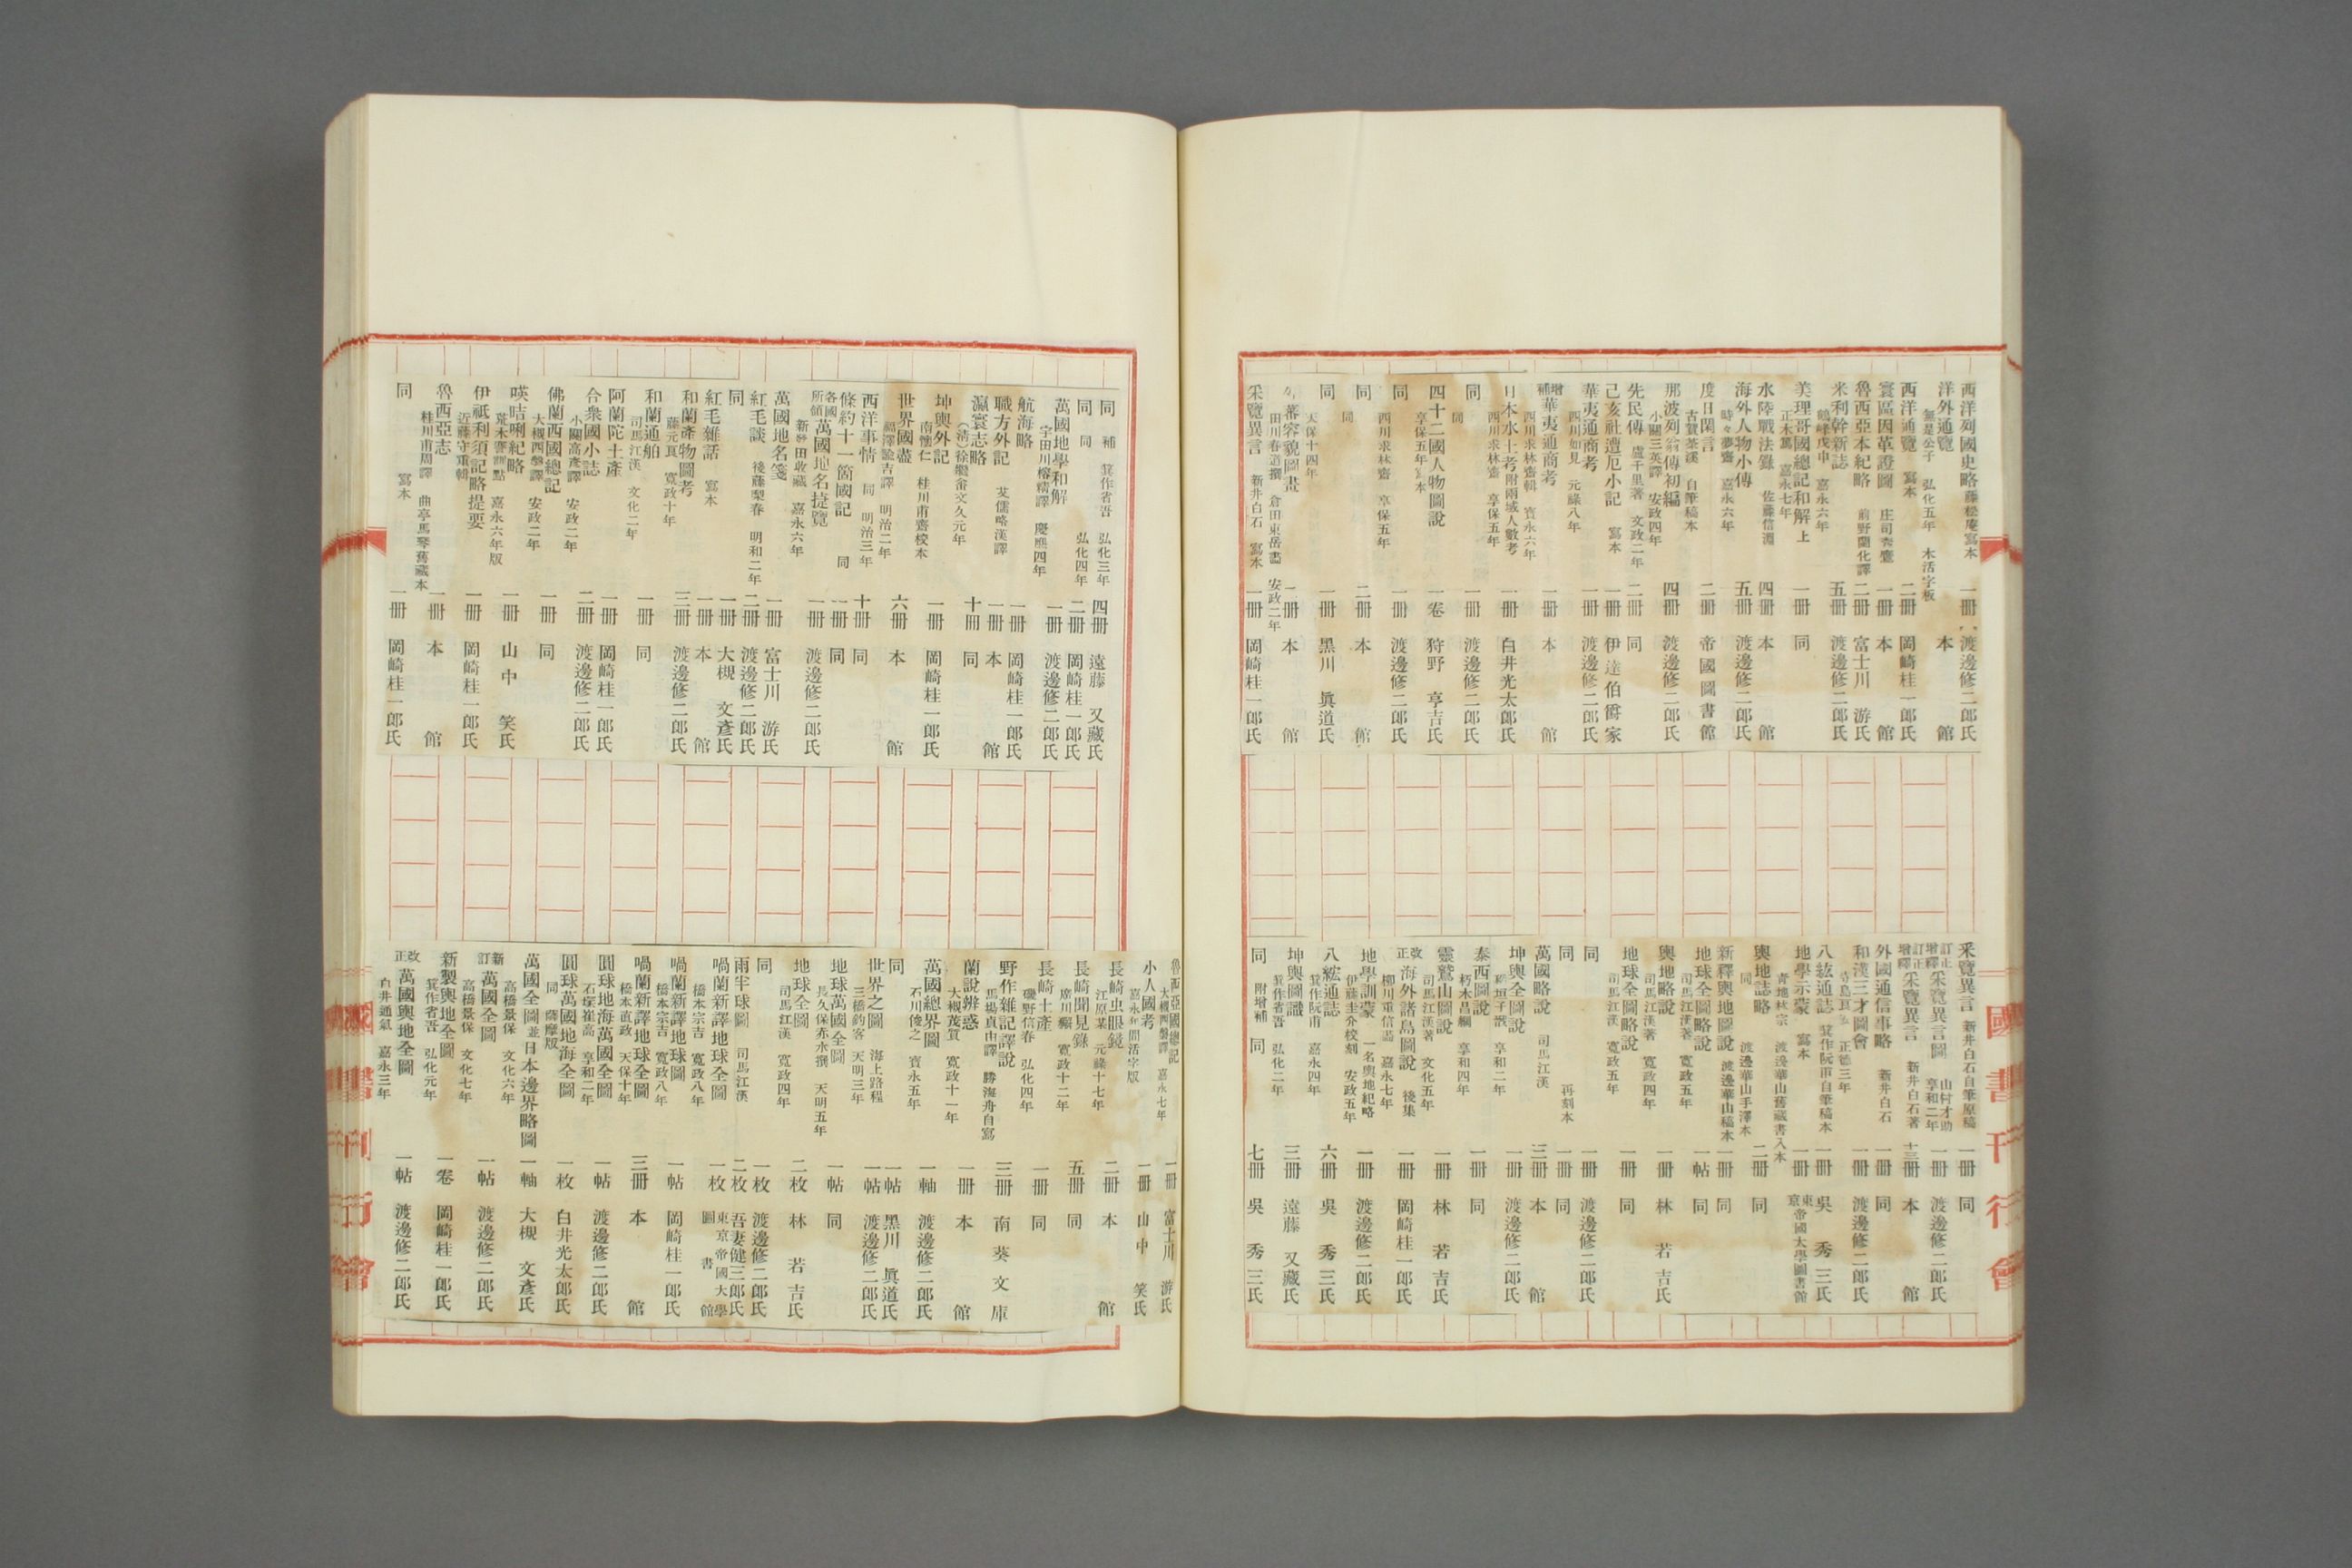 西洋列國史略 藤松庵寫本 一冊 渡邊修二郎氏
洋外通覽 無是公子 弘化五年 木活字板 本館
西洋通覽 寫本 二冊 岡崎桂一郎氏
寰區因革證圖 庄司 一冊 本館
魯西亞本紀略 前野蘭化譯 二冊 富士川游氏
米利幹新誌 鶴峰戊申 嘉永六年 五冊 渡邊修二郎氏
美理哥國總記和解 上 正木篤 嘉永七年 一冊 同
水陸戰法錄 佐藤信淵 四冊 本館
海外人物小傳 時々夢齋 嘉永六年 五冊 渡邊修二郎氏
度日閑言 古賀茶溪 自筆稿本 二冊 帝國圖書館
那波列翁傳初編 小關三英譯 安政四年 四冊 渡邊修二郎氏
先民傳 盧千里著 文政二年 二冊 同
己亥社遭厄小記 寫本 一冊 伊達伯爵家
華夷通商考 西川如見 元祿八年 一冊 渡邊修二郎氏
增補華夷通商考 西川求林齋輯 寶永六年 一冊 本館
日本水土考附兩域人數考 西川求林齋 享保五年 一冊 白井光太郎氏
同 同 一冊 渡邊修二郎氏
四十二國人物圖說 享保五年寫本 一卷 狩野亨吉氏
同 西川求林齋 享保五年 一冊 渡邊修二郎氏
同 同 二冊 本館
同 天保十四年 一冊 黑川眞道氏
蕃容貌圖畫 田川春道撰 倉田東岳畵 安政二年 一冊 本館
采覽異言 新井白石 寫本 一冊 岡崎桂一郎氏
采覽異言 新井白石自筆原稿 一冊 同
訂正增譯采覽異言圖 山村才助 享和二年 一冊 渡邊修二郎氏
訂正增譯采覽異言 新井白石著 十三冊 本館
外國通信事略 新井白石 一冊 同
和漢三才圖會 寺島良 正德三年 一冊 渡邊修二郎氏
八紘通誌 箕作阮甫自筆稿本 一冊 吳秀三氏
地學示蒙 寫本 一冊 東京帝國大學圖書館
輿地誌略 青地林宗 渡邊華山舊藏書入本 二冊 同
同 渡邊華山手澤本
新釋輿地圖說 渡邊華山稿本 一冊 同
地球全圖略說 司馬江漢著 寬政五年 一帖 同
輿地略說 司馬江漢著 寬政四年 一冊 林若吉氏
地球全圖略說 司馬江漢 寬政五年 一冊 同
同 一冊 渡邊修二郎氏
同 再刻本 一冊 同
萬國略說 司馬江漢 三冊 本館
坤輿全圖說 稻垣子戩 享和二年 一冊 渡邊修二郎氏
泰西圖說 朽木昌綱 享和四年 一冊 同
靈鷲山圖說 司馬江漢著 文化五年 一冊 林若吉氏
改正海外諸島圖說 後集 柳川重信 嘉永七年 一冊 岡崎桂一郎氏
地學訓蒙 一名輿地紀略 伊藤圭介校刻 安政五年 一冊 渡邊修二郎氏
八紘通誌 箕作阮甫 嘉永四年 六冊 吳秀三氏
坤輿圖識 箕作省吾 弘化二年 三冊 遠藤又藏氏
同 附增補 同 七冊 吳秀三氏
國書刊行會
同 補 箕作省吾 弘化三年 四冊 遠藤又藏氏
同 同 弘化四年 二冊 岡崎桂一郎氏
萬國地學和解 宇田川榕精譯 慶應四年 一冊 渡邊修二郎氏
航海略 一冊 岡崎桂一郎氏
職方外記 艾儒略漢譯 一冊 本館
瀛寰志略 (清)徐繼畬 文久元年 十冊 同
坤輿外記 南懷仁 桂川甫齋校本 一冊 岡崎桂一郎氏
世界國盡 福澤諭吉譯 明治二年 六冊 本館
西洋事情 同 明治三年 十冊 同
條約十一箇國記 同 一冊 同
各國所領萬國地名捷覽 一冊 渡邊修二郎氏
萬國地名箋 新發田收藏 嘉永六年 一冊 富士川游氏
紅毛談 後藤梨春 明和二年 二冊 渡邊修二郎氏
同 一冊 大槻文彥氏
紅毛雜話 寫本 一冊 本館
和蘭產物圖考 藤元良 寬政十年 三冊 渡邊修二郎氏
和蘭通舶 司馬江漢 文化二年 一冊 同
阿蘭陀土產 一冊 岡崎桂一郎氏
合衆國小誌 小關高彥譯 安政二年 二冊 渡邊修二郎氏
佛蘭西國總記 大槻西磐譯 安政二年 一冊 同
暎咭唎紀略 荒木謇訓點 嘉永六年版 一冊 山中笑氏
伊祇利須記略提要 近藤守重輯 一冊 岡崎桂一郎氏
魯西亞志 桂川甫周譯 曲亭馬琴舊藏本 一冊 本館
同 寫本 一冊 岡崎桂一郎氏
魯西亞國總記 大槻磐譯 嘉永七年 一冊 富士川游氏
小人國考 嘉永年間活字版 一冊 山中笑氏
長崎虫眼鏡 江原某 元祿十七年 二冊 本館
長崎聞見錄 廣川獬 寬政十二年 五冊 同
長崎土產 磯野信春 弘化四年 一冊 同
野作雜記譯說 馬塲貞由譯 勝海舟自寫 三冊 南葵文庫
蘭說辨惑 大槻茂質 寬政十一年 一冊 本館
萬國總界圖 石川俊之 寶永五年 一軸 渡邊修二郎氏
同 一帖 黑川眞道氏
世界之圖 海上路程 三橋釣客 天明三年 一帖 渡邊修二郎氏
地球萬國全圖 長久保赤水撰 天明五年 一帖 同
地球全圖 司馬江漢 寬政四年 二枚 林若吉氏
同 一枚 渡邊修二郎氏
兩半球圖 司馬江漢 二枚 吾妻健三郎氏
喎蘭新譯地球全圖 橋本宗吉 寬政八年 一枚 東京帝國大學圖書館
喎蘭新譯地球圖 橋本宗吉 寬政八年 一帖 岡崎桂一郎氏
喎蘭新譯地球全圖 橋本直政 天保十年 三冊 本館
圓球地海萬國全圖 石塚崔高 享和二年 一帖 渡邊修二郎氏
圓球萬國地海全圖 同 薩摩版 一枚 白井光太郎氏
萬國全圖並日本邊界略圖 高橋景保 文化六年 一軸 大槻文彥氏
新訂萬國全圖 高橋景保 文化七年 一帖 渡邊修二郎氏
新製輿地全圖 箕作省吾 弘化元年 一卷 岡崎桂一郎氏
改正萬國輿地全圖 白井通氣 嘉永三年 一帖 渡邊修二郎氏
國書刊行會